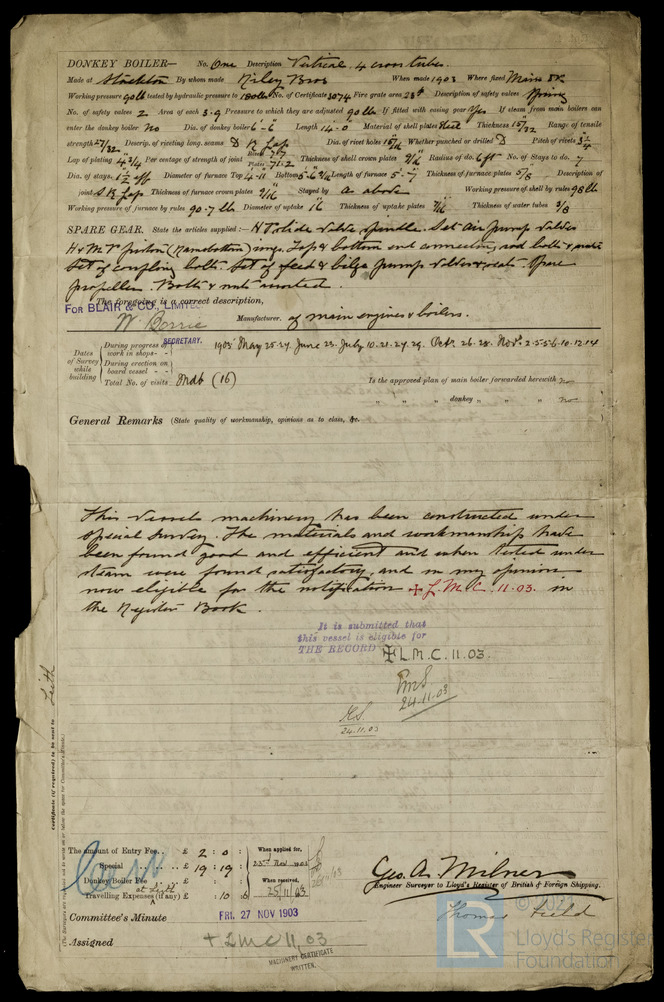 DONKEY BOILER— No. One Description Vertical 4 cross tubes.
Made at Stockton By whom made Riley Bros When made 1903 Where fixed Main Dk
Working pressure 90 lb tested by hydraulic pressure to 180 lbs No. of Certificate 3074 Fire grate area 23 ft Description of safety valves Spring
No. of safety valves 2 Area of each 3.9 Pressure to which they are adjusted 90 lb If fitted with easing gear Yes If steam from main boilers can
enter the donkey boiler No Dia. of donkey boiler 6-6 Length 14-0 Material of shell plates Steel Thickness 15/32 Range of tensile
strength 27/32 Descrip. of riveting long. seams D R Lap Dia. of rivet holes 15/16 Whether punched or drilled D Pitch of rivets 3 1/4
Lap of plating 4 3/4 Per centage of strength of joint Plates 71.2 Thickness of shell crown plates 9/16 Radius of do. 6 ft No. of Stays to do. 7
Dia. of stays. 1 1/2 eff Diameter of furnace Top 4-11 Bottom Length of furnace 5-7 Thickness of furnace plates 5/8 Description of
joint S R Lap Thickness of furnace crown plates 9/16 Stayed by as above Working pressure of shell by rules 98 lb
Working pressure of furnace by rules 90.7 lb Diameter of uptake 16 Thickness of uptake plates 7/16 Thickness of water tubes 3/8
SPARE GEAR. State the articles supplied:— H P slide valve spindle. Set air pump valves
H & M P piston (Ramsbottom) rings. Top & bottom end connecting rod bolts & nuts
Set of coupling bolts. Set of feed & bilge pump valves & seats. Spare
propeller. Bolts & nuts assorted.
The foregoing is a correct description,
FOR BLAIR & CO., LIMITED
W Borrie Manufacturer. of main engines & boilers.
SECRETARY.
Dates of Survey while building
During progress of work in shops - - 1903 May 25.27. June 23. July 10.21.24.29. Oct. 26.28. Nov. 2.5.5.6.10.12.14
During erection on board vessel - -
Total No. of visits (16)
Is the approved plan of main boiler forwarded herewith no
" " " donkey " " " no
General Remarks (State quality of workmanship, opinions as to class, &c.
This vessels machinery has been constructed under
special survey. The materials and workmanship have
been found good and efficient and when tested under
steam were found satisfactory, and in my opinion
now eligible for the notification + L.M.C. 11.03. in
the Register Book.
It is submitted that
this vessel is eligible for
THE RECORD + L.M.C. 11.03.
24.11.03
24.11.03
Certificate (if required) to be sent to Leith
The amount of Entry Fee.. £ 2 : 0 : When applied for,
Special .. .. .. £ 19 : 19 : 25th Nov 1903
Donkey Boiler Fee .. £ When received,
at Leith
Travelling Expenses (if any) £ : 10 : 6 25/11/03
Geo. A. Milner
Engineer Surveyor to Lloyd's Register of British & Foreign Shipping.
Thomas Field
Committee's Minute FRI. 27 NOV 1903
Assigned + LMC 11,03
MACHINERY CERTIFICATE
WRITTEN.
LR
Lloyd's Register
Foundation